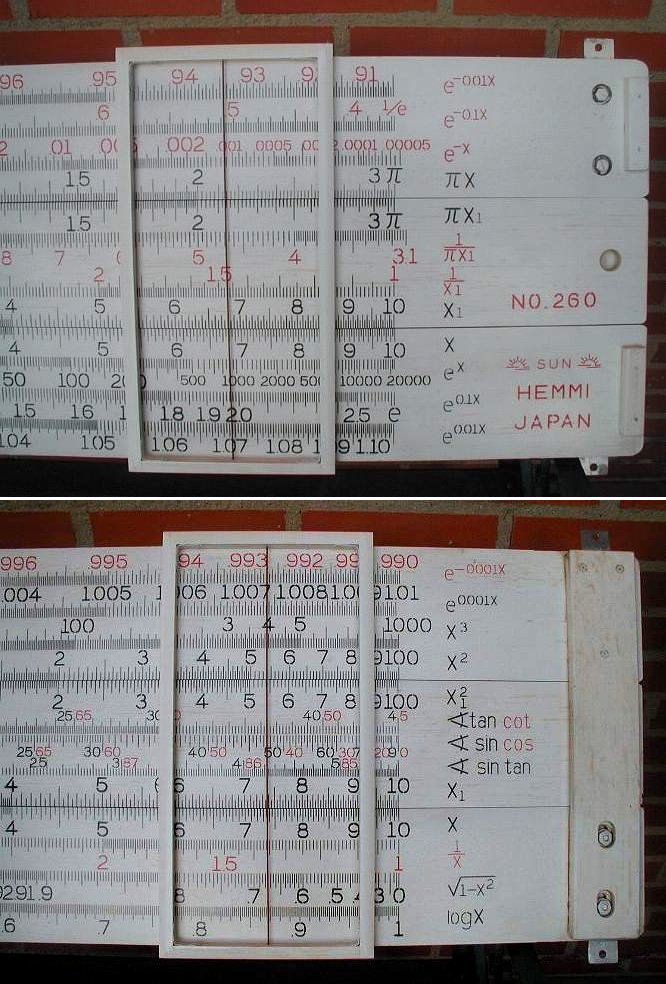 96 95 94 93 91 e^-001X
6 5 4 1/e e^-01X
01 002 001 0005 0001 00005 e^-X
15 2 3 π πX
15 2 3 π πX1
8 7 5 4 31 1/πX1
2 15 1 1/X1
4 5 6 7 8 9 10 X1
NO.260
4 5 6 7 8 9 10 X
50 100 500 1000 2000 10000 20000 e^X
SUN
15 16 18 19 20 25 e e^01X
HEMMI
JAPAN
104 105 106 107 108 9 110 e^001X
996 995 94 993 992 99 990 e^-0001X
004 1005 006 1007 1008 100 9101 e^0001X
100 3 4 5 1000 X^3
2 3 4 5 6 7 8 9 100 X^2
2 3 4 5 6 7 8 9 100 X1^2
25 65 30 40 50 45 ∢ tan cot
25 65 30 60 40 50 50 40 60 30 90 ∢ sin cos
25 3 87 4 86 5 85 ∢ sin tan
4 5 6 7 8 9 10 X1
4 5 6 7 8 9 10 X
2 15 1 1/X
9291.9 8 .7 .6 .5 .4 3 0 √1-X^2
.6 .7 .8 .9 1 logX